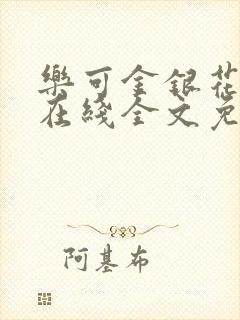 樂可金銀花
在綫全文免
阿基布